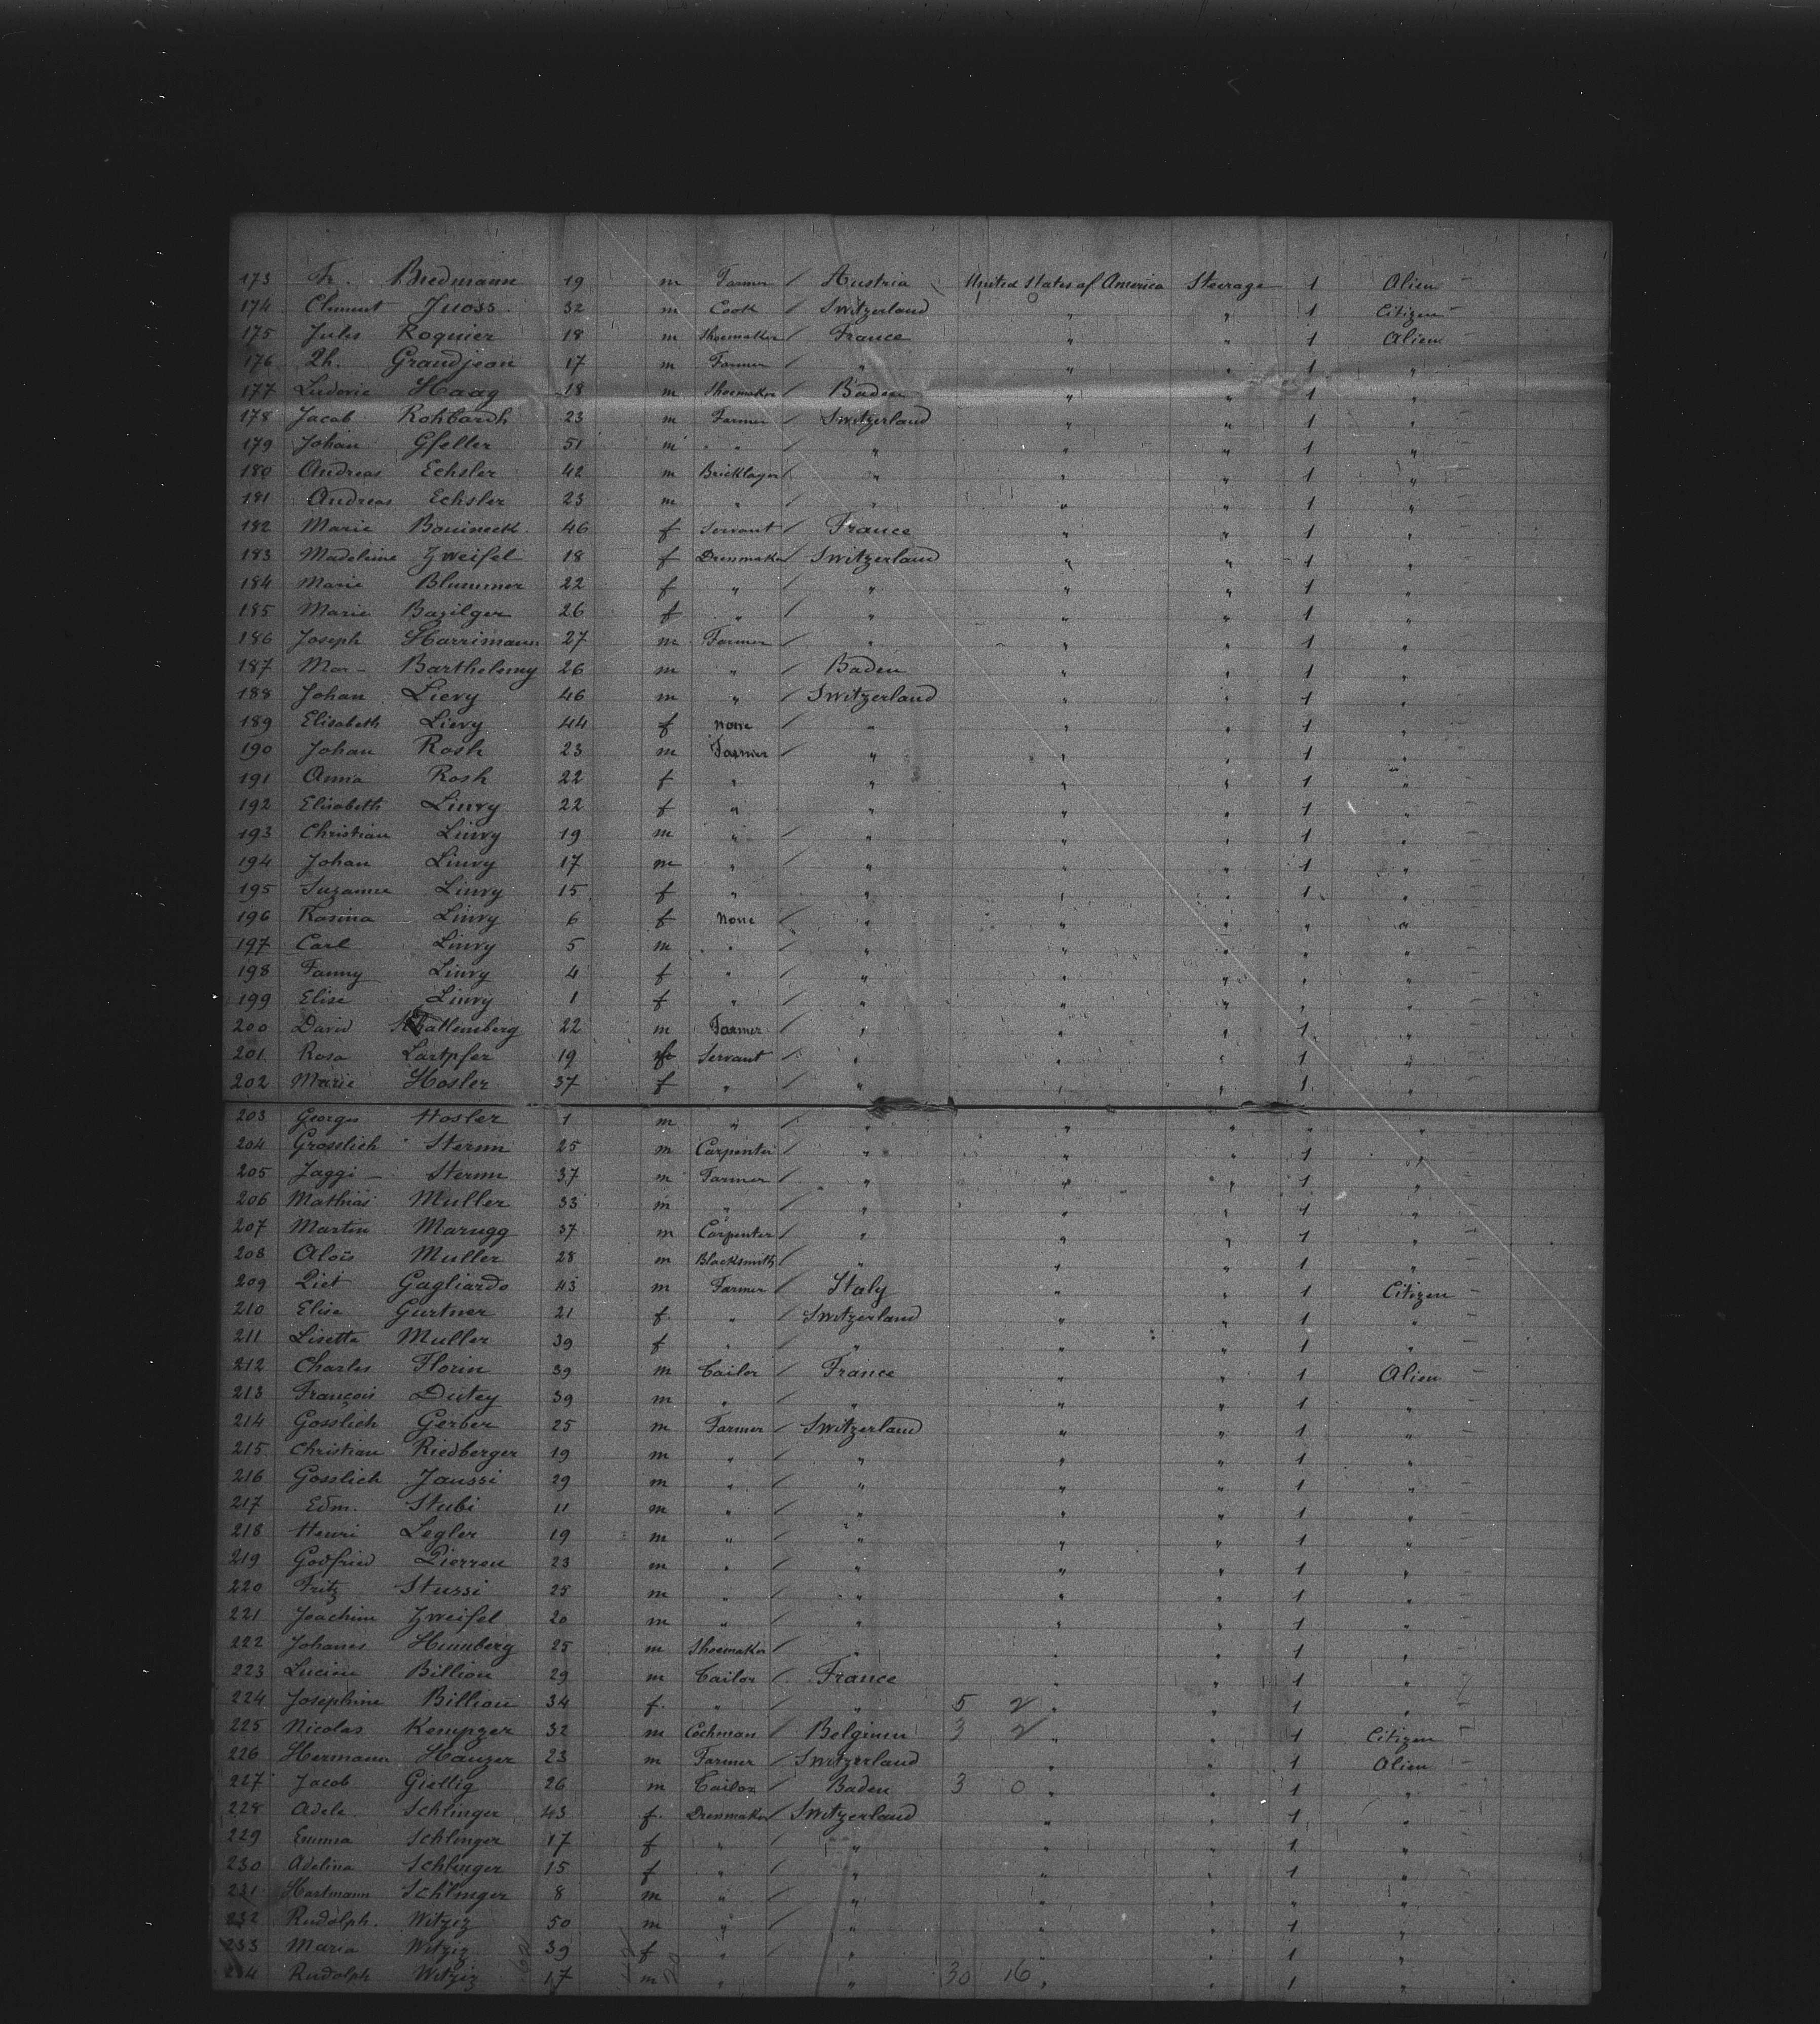 173 Fr. Biedmann 19 m Farmer / Austria United States of America Steerage 1 Alien -
174 Clement Juoss 32 m Cook / Switzerland " " 1 Citizen -
175 Jules Roguier 18 m Shoemaker / France " " 1 Alien
176 Ph. Grandjean 17 m Farmer / " " " 1 "
177 Ludovic Haag 18 m Shoemaker / Baden " " 1 "
178 Jacob Rohbardh 23 m Farmer / Switzerland " " 1 "
179 Johan Gfeller 51 m " / " " " 1 "
180 Andreas Echsler 42 m Bricklayer / " " " 1 "
181 Andreas Echsler 23 m " / " " " 1 "
182 Marie Bouineck 46 f Servant / France " " 1 "
183 Madeleine Zweifel 18 f Dressmaker / Switzerland " " 1 "
184 Marie Blummer 22 f " / " " " 1 "
185 Marie Bazilger 26 f " / " " " 1 "
186 Joseph Harrimann 27 m Farmer / " " " 1 "
187 Mar - Barthelemy 26 m " / Baden " " 1 "
188 Johan Lievy 46 m " / Switzerland " " 1 "
189 Elisabeth Lievy 44 f none / " " " 1 "
190 Johan Rosh 23 m Farmer / " " " 1 "
191 Anna Rosh 22 f " " " " 1 "
192 Elisabeth Linvy 22 f " " " " 1 "
193 Christian Linvy 19 m " / " " " 1 "
194 Johan Linvy 17 m " / " " " 1 "
195 Suzanne Linvy 15 f " " " " 1 "
196 Rosina Linvy 6 f None / " " " " "
197 Carl Linvy 5 m " / " " " " "
198 Fanny Linvy 4 f " / " " " " "
199 Elise Linvy 1 f " / " " " " "
200 David Schallemberg 22 m Farmer / " " " 1 "
201 Rosa Lartpfer 19 f Servant / " " " 1 "
202 Marie Hosler 37 f " / " " " 1 "
203 Georges Hosler 1 m " / " " " " "
204 Grosslich Stermi 25 m Carpenter / " " " 1 "
205 Jaggi - Stermi 37 m Farmer / " " " 1 "
206 Mathias Muller 33 m " / " " " 1 "
207 Martin Marugg 37 m Carpenter / " " " 1 "
208 Aloïs Muller 28 m Blacksmith / " " " 1 "
209 Piet Gagliardo 43 m Farmer / Italy " " 1 Citizen -
210 Elise Gurtner 21 f " Switzerland " " 1 "
211 Lisette Muller 39 f " / " " " 1 "
212 Charles Florin 39 m Tailor / France " " 1 Alien -
213 François Dutey 39 m " / " " " 1 "
214 Gosslich Gerber 25 m Farmer / Switzerland " " 1 "
215 Christian Riedberger 19 m " / " " " 1 "
216 Gosslich Jaussi 29 m " / " " " 1 "
217 Edm. Stubi 11 m " / " " " 1 "
218 Henri Legler 19 m " / " " " 1 "
219 Godfried Pierren 23 m " / " " " 1 "
220 Fritz Stussi 25 m " / " " " 1 "
221 Joachim Zweifel 20 m " / " " " 1 "
222 Johanes Humberg 25 m Shoemaker / " " " 1 "
223 Lucien Billion 29 m Tailor / France " " 1 "
224 Josephine Billion 34 f. " / " 5 2 " " 1 "
225 Nicolas Kempzer 32 m Cochman / Belgium 3 2 " " 1 Citizen -
226 Hermann Hauzer 23 m Farmer / Switzerland " " 1 Alien -
227 Jacob Giellig 26 m Tailor / Baden 3 0 " " 1 "
228 Adele Schlinger 43 f. Dressmaker / Switzerland " " 1 "
229 Emma Schlinger 17 f " / " " " 1 "
230 Adelina Schlinger 15 f " / " " " 1 "
231 Hartmann Schlinger 8 m " / " " " " "
232 Rudolph. Witziz 50 m " / " " " 1 "
233 Maria Witziz 39 f " / " " " 1 "
234 Rudolph Witziz 17 m " " 30 16 " " 1 "